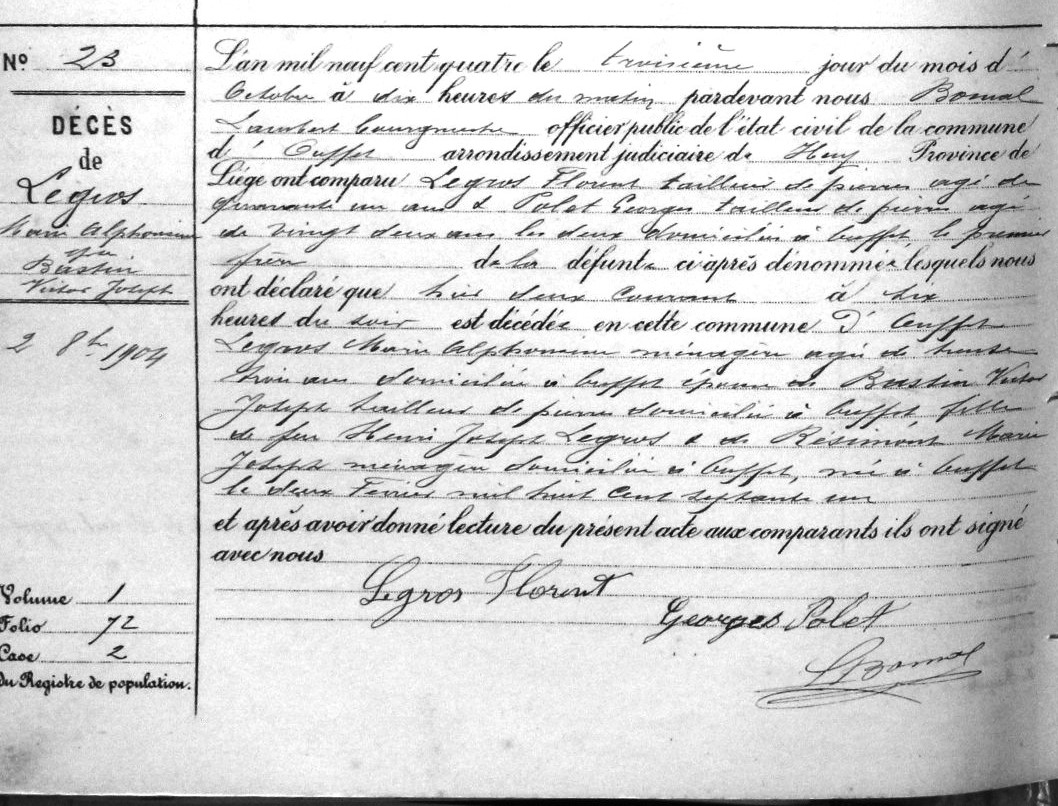 Nº 23
DÉCÈS
de
Legros
Marie Alphonsine
Bastin
Victor Joseph
2 8bre 1904
Volume 1
Folio 72
Case 2
du Registre de population.
L'an mil neuf cent quatre le troisième jour du mois d'
Octobre à dix heures du matin pardevant nous Bomal
Lambert bourgmestre officier public de l'état civil de la commune
d' Ouffet arrondissement judiciaire de Huy Province de
Liége ont comparu Legros Florent tailleur de pierres agé de
quarante un ans & Polet Georges tailleur de pierres agé
de vingt deux ans les deux domiciliés à Ouffet le premier
frère de la défunte ci après dénommée lesquels nous
ont déclaré que hier deux courant à six
heures du soir est décédée en cette commune d' Ouffet
Legros Marie Alphonsine ménagère agée de trente
trois ans domiciliée à Ouffet épouse de Bastin Victor
Joseph tailleur de pierres domicilié à Ouffet fille
de feu Henri Joseph Legros & de Résimont Marie
Joseph ménagère domiciliée à Ouffet, née à Ouffet
le deux Février mil huit cent septante un
et après avoir donné lecture du présent acte aux comparants ils ont signé
avec nous
Legros Florent
Georges Polet
LBomal